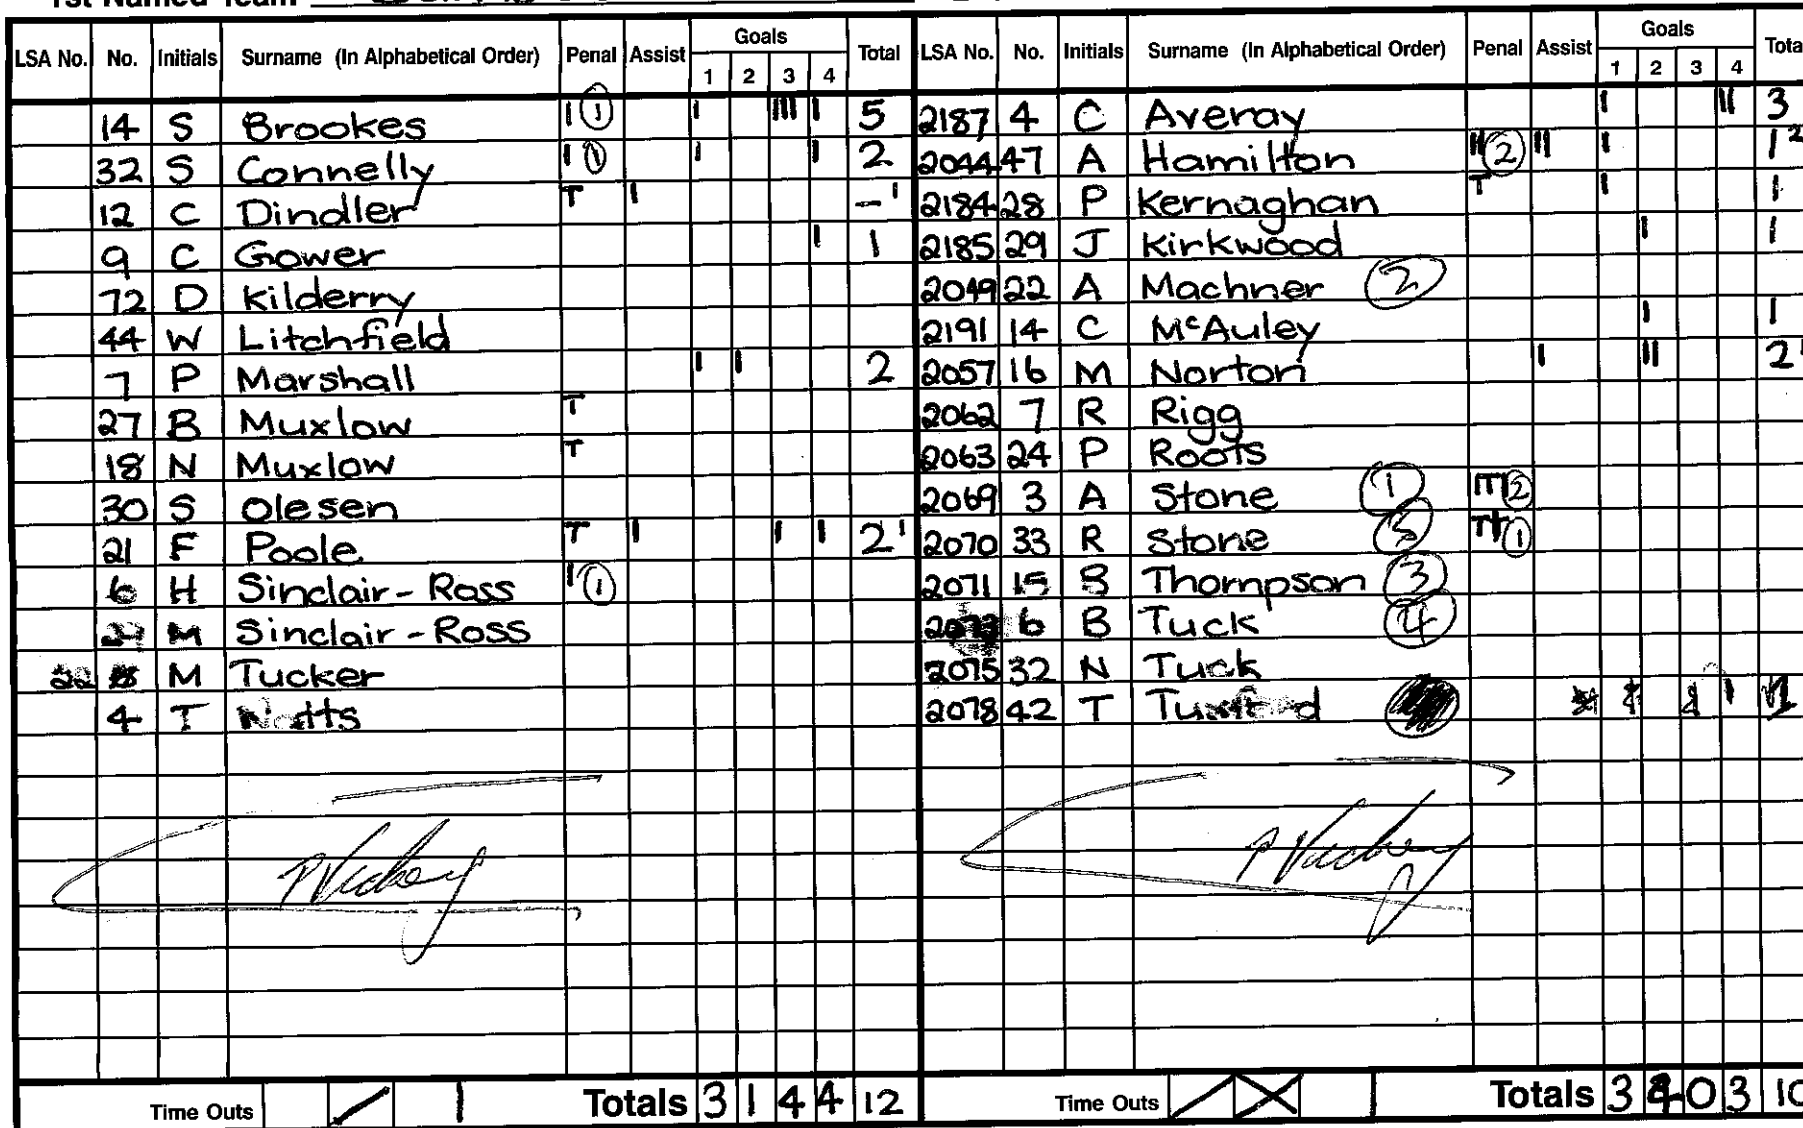 1st Named Team
LSA No. No. Initials Surname (In Alphabetical Order) Penal Assist Goals 1 2 3 4 Total
14 S Brookes I ① I III I 5
32 S Connelly I ① I I 2
12 C Dindler T I – '
9 C Gower I 1
72 D Kilderry
44 W Litchfield
7 P Marshall I I 2
27 B Muxlow T
18 N Muxlow T
30 S Olesen
21 F Poole T I I I 2 '
6 H Sinclair-Ross I ①
M Sinclair-Ross
22 M Tucker
4 T
Time Outs / I Totals 3 1 4 4 12
LSA No. No. Initials Surname (In Alphabetical Order) Penal Assist Goals 1 2 3 4 Tota
2187 4 C Averay I II 3
2044 47 A Hamilton II ② II I 1 2
2184 28 P Kernaghan T I 1
2185 29 J Kirkwood I 1
2049 22 A Machner ②
2191 14 C McAuley I 1
2057 16 M Norton I II 2 '
2062 7 R Rigg
2063 24 P Roots
2069 3 A Stone ① ITI ②
2070 33 R Stone ⑤ ①
2071 15 B Thompson ③
6 B Tuck ④
2075 32 N Tuck
2078 42 T I
Time Outs / X Totals 3 0 3 10